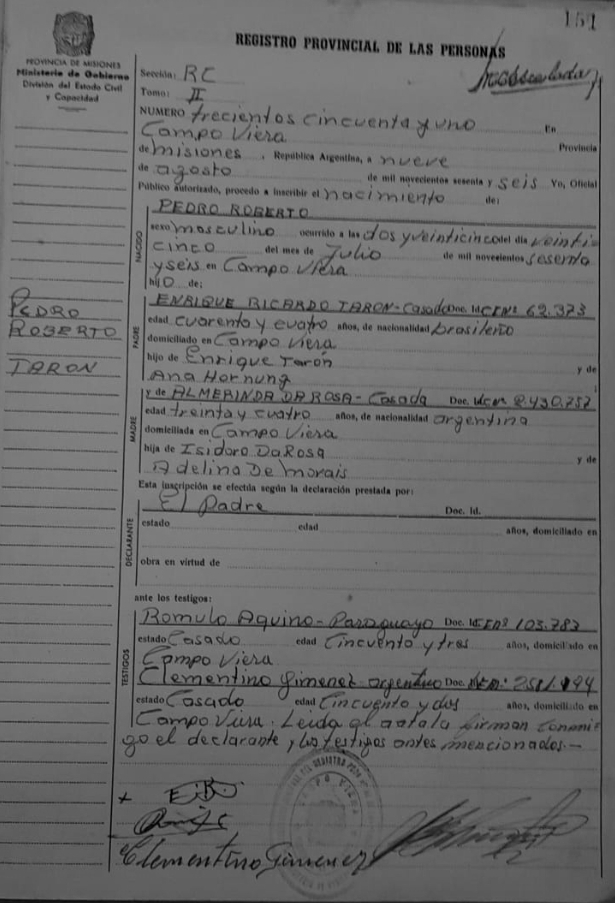 151
PROVINCIA DE MISIONES
Ministerio de Gobierno
División del Estado Civil
y Capacidad
REGISTRO PROVINCIAL DE LAS PERSONAS
Sección: RC
Tomo: II
NUMERO trecientos cincuenta y uno En
Campo Viera Provincia
de misiones , República Argentina, a nueve
de agosto de mil novecientos sesenta y seis Yo, Oficial
Público autorizado, procedo a inscribir el nacimiento de:
NACIDO
PEDRO ROBERTO
sexo masculino ocurrido a las dos y veinticinco del día veinti
cinco del mes de Julio de mil novecientos sesenta
y seis en Campo Viera
hijo de:
PEDRO
ROBERTO
TARON
PADRE
ENRIQUE RICARDO TARON - Casado Doc. Id. CI Nº 62.373
edad cuarenta y cuatro años, de nacionalidad brasilero
domiciliado en Campo Viera
hijo de Enrique Tarón y de
Ana Hornung
MADRE
y de ALMERINDA DA ROSA - Casada Doc. 2.430.757
edad treinta y cuatro años, de nacionalidad argentina
domiciliada en Campo Viera
hija de Isidoro DaRosa y de
Adelina De Morais
Esta inscripción se efectúa según la declaración prestada por:
DECLARANTE
El Padre Doc. Id.
estado edad años, domiciliado en
obra en virtud de
ante los testigos:
TESTIGOS
Romulo Aquino - Paraguayo Doc. Id. CI Nº 103.783
estado Casado edad Cincuenta y tres años, domiciliado en
Campo Viera
Clementino Gimenez argentino Doc.
estado Casado edad Cincuenta y dos años, domiciliado en
Campo Viera. Leida el acta la firman conmi
go el declarante y los testigos antes mencionados.-
Clementino Gimenez